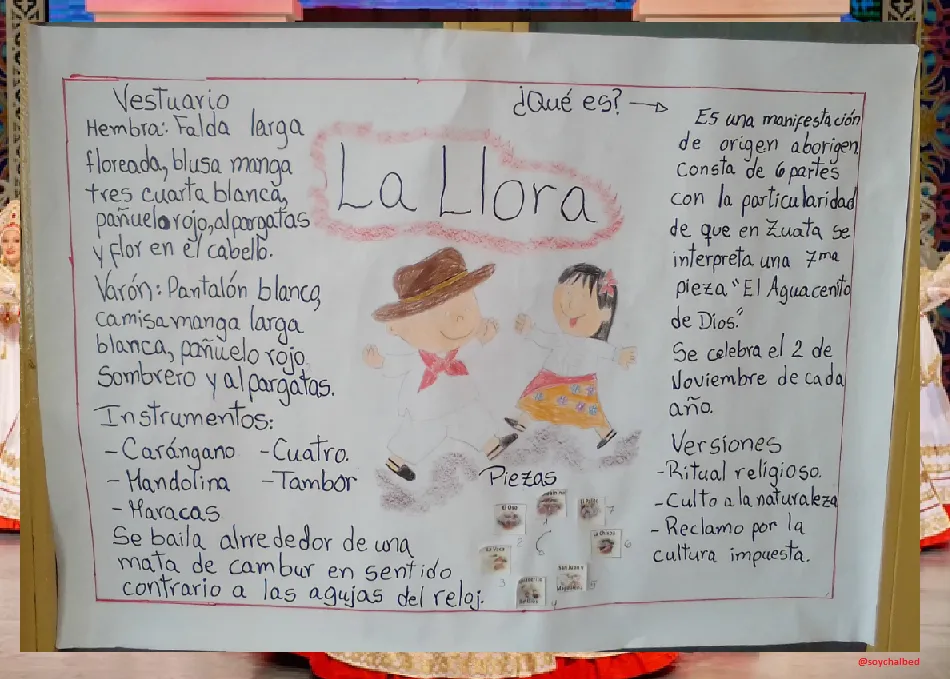 Vestuario
Hembra: Falda larga
floreada, blusa manga
tres cuarta blanca,
pañuelo rojo, alpargatas
y flor en el cabello.
Varón: Pantalón blanco,
camisa manga larga
blanca, pañuelo rojo,
Sombrero y alpargatas.
Instrumentos:
- Carángano - Cuatro.
- Mandolina - Tambor
- Maracas
Se baila alrrededor de una
mata de cambur en sentido
contrario a las agujas del reloj.
La Llora
Piezas
1
2
3
4
5
6
7
¿Qué es? →
Es una manifestación
de origen aborigen,
Consta de 6 partes
con la particularidad
de que en Zuata se
interpreta una 7ma
pieza "El Aguacerito
de Dios."
Se celebra el 2 de
Noviembre de cada
año.
Versiones
- Ritual religioso.
- Culto a la naturaleza
- Reclamo por la
cultura impuesta.
@soychalbed